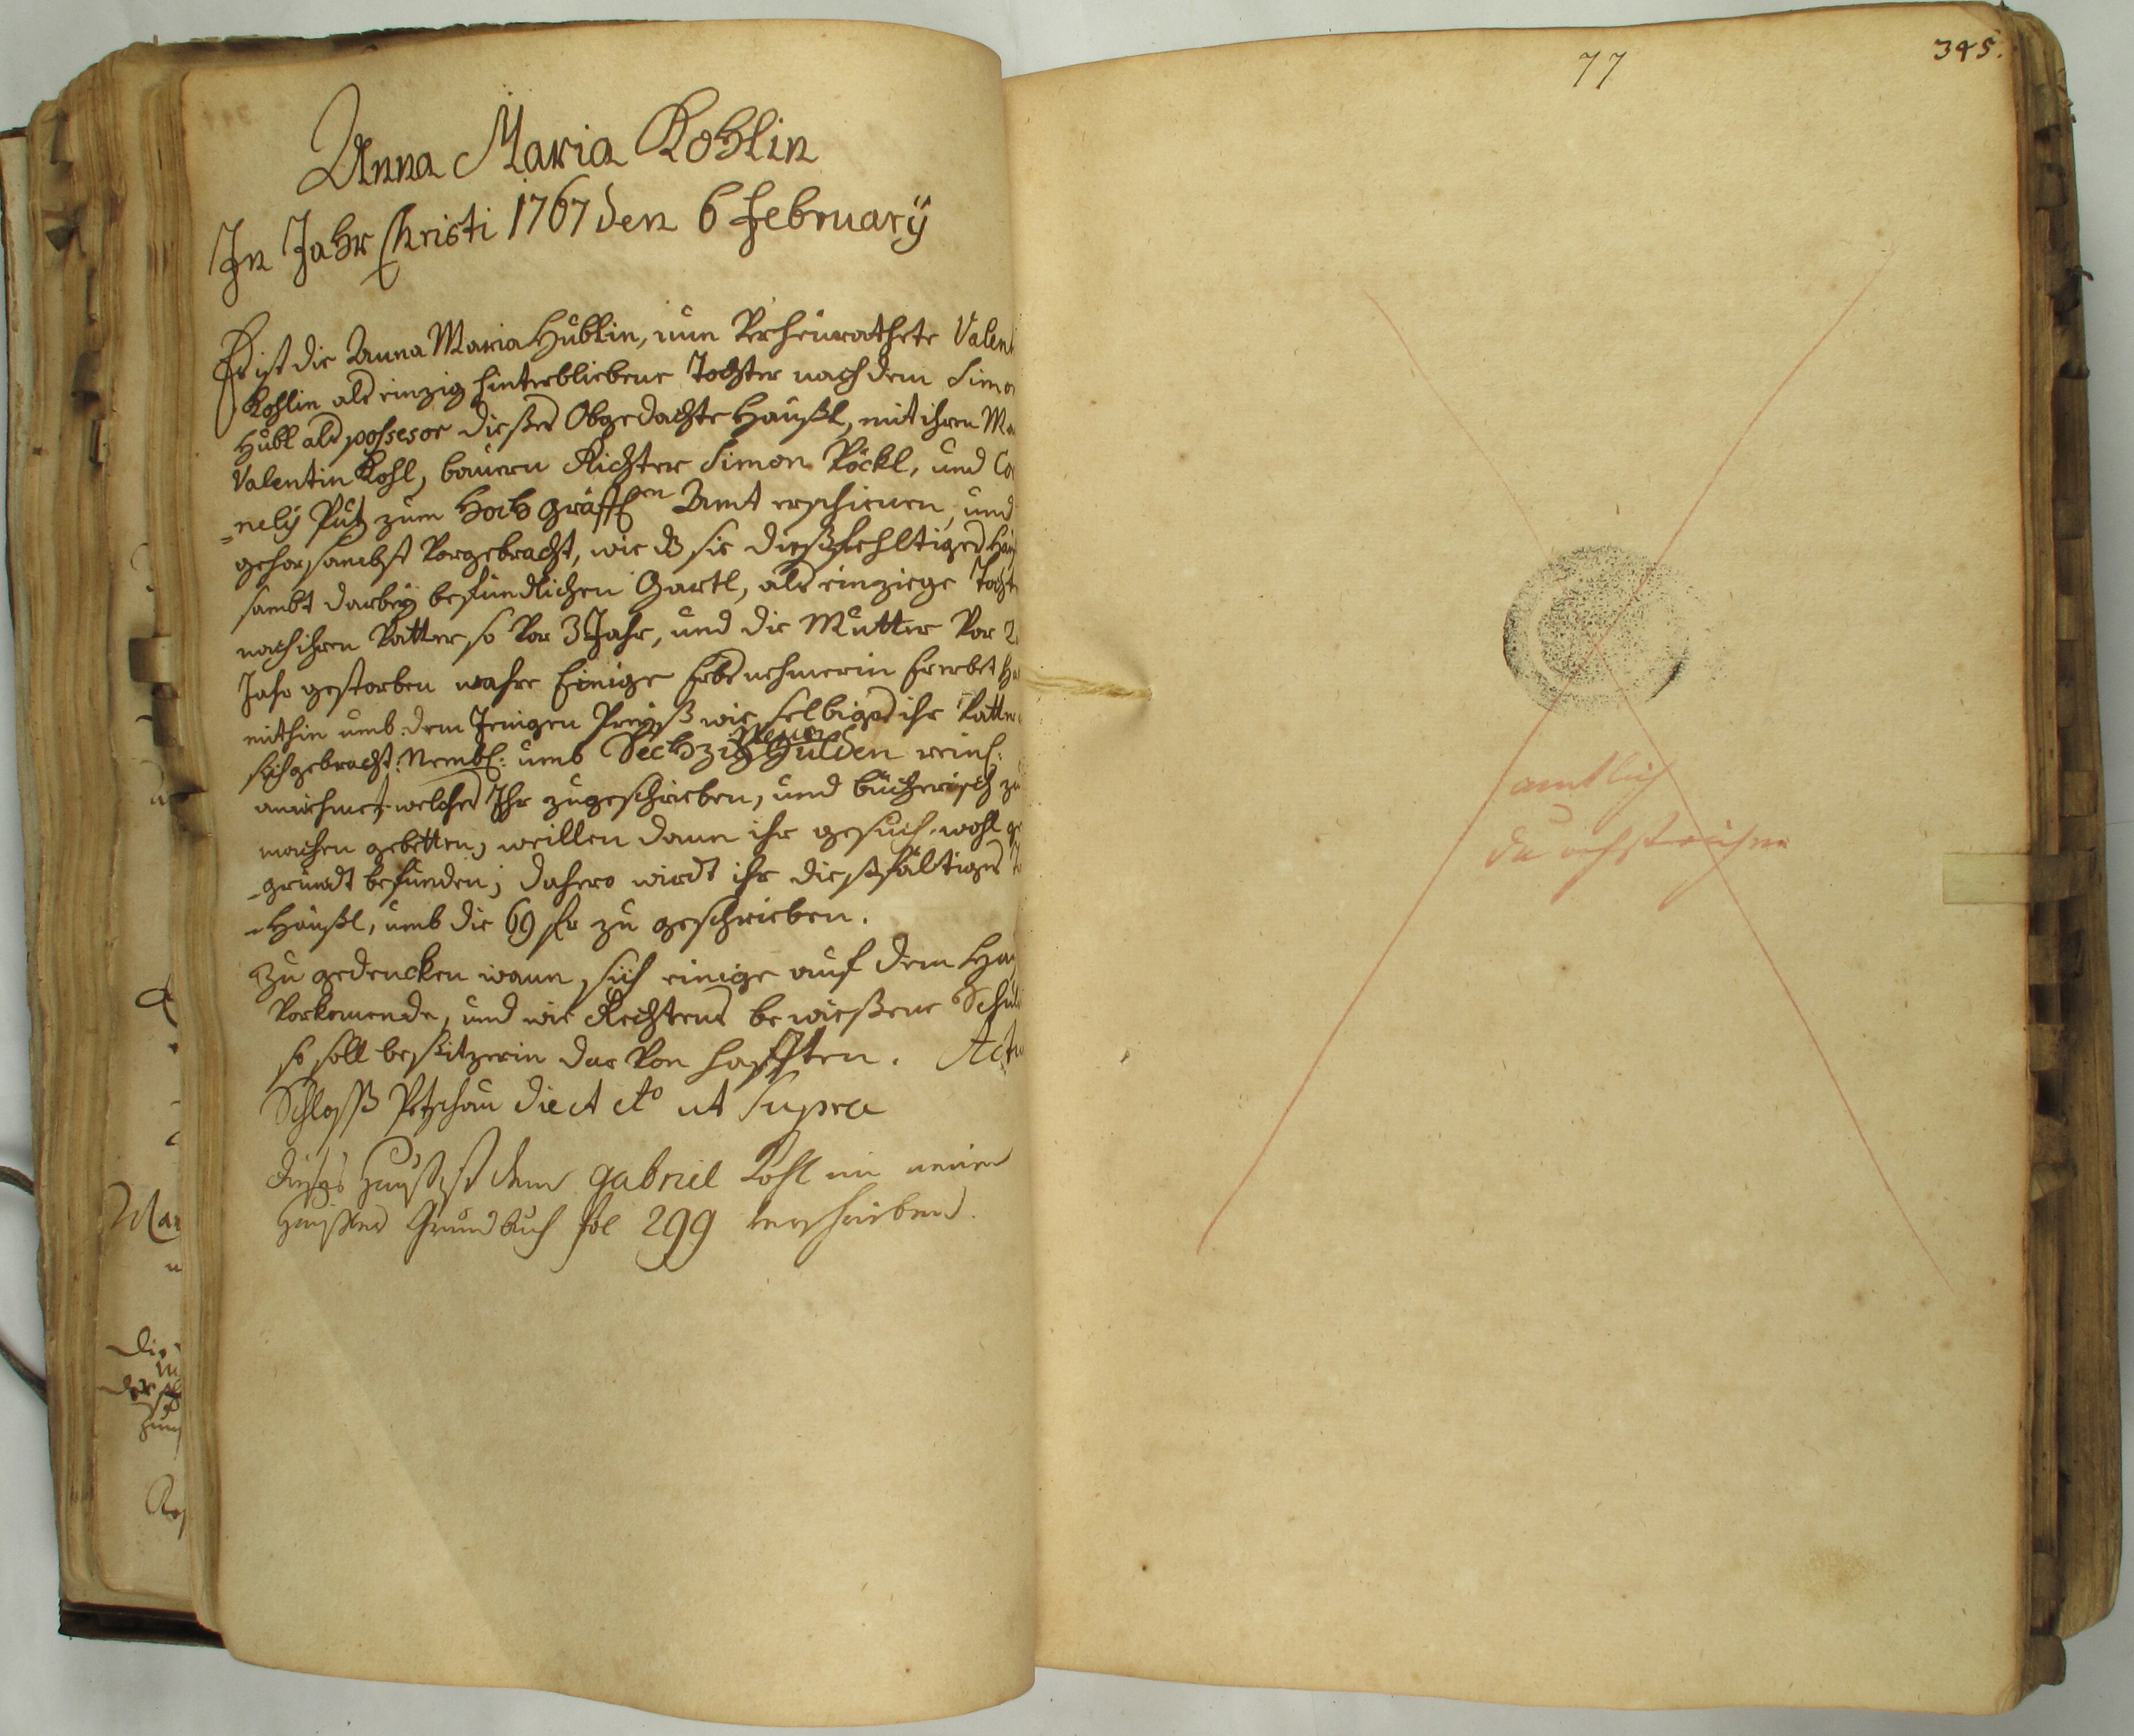 Anna Maria Kohlin
In Jahr Christi 1767 den 6 February
Es ist die Anna Maria Hüblin, nun Verheurathete Valent
Kohlin als einzig hinterbliebene Tochter nach dem Simon
Hübl als possesor dießes Obgedachte Häußl, mit ihren Ma
Valentin Kohl, bauern Richter Simon Böckl, und Co
=nely Putz zum Hoch gräffl:en Ambt erschienen, und
gehorsambst Vorgebracht, wie dß sie dießfehltiges Häu
sambt darbey befündlichen Gartl, als einziege Tocht
nach ihren Vatter so Vor 3 Jahr, und die Mutter Vor 2
Jahr gestorben wahre Einige Erbsnehmerin Ererbet ha
mithin umb dem Jenigen Preyß wie selbiges ihr Vatter
sich gebracht: Nembl: umb Sechzig Neun Gulden reinl:
annehmet welches Ihr zugeschrieben, und bücherisch zu
machen gebetten, weillen dann ihr gesuch wohl ge
-gründt befunden; dahero wirdt ihr dießfältiges
-Häußl, umb die 69 fl zu geschrieben.
Zu gedencken wann sich einige auf dem Hau
Vorkomende, und wie Rechtens bewießene Schul
so soll besitzerin dar Von hafften. Actu
Schloß Petschau die et Ao ut Supra
dieses Hauß ist dem gabriel Kohl im neuen
Häußer Grundbuch fol 299 verschrieben.
77
345.
amtlich
durchstrichen